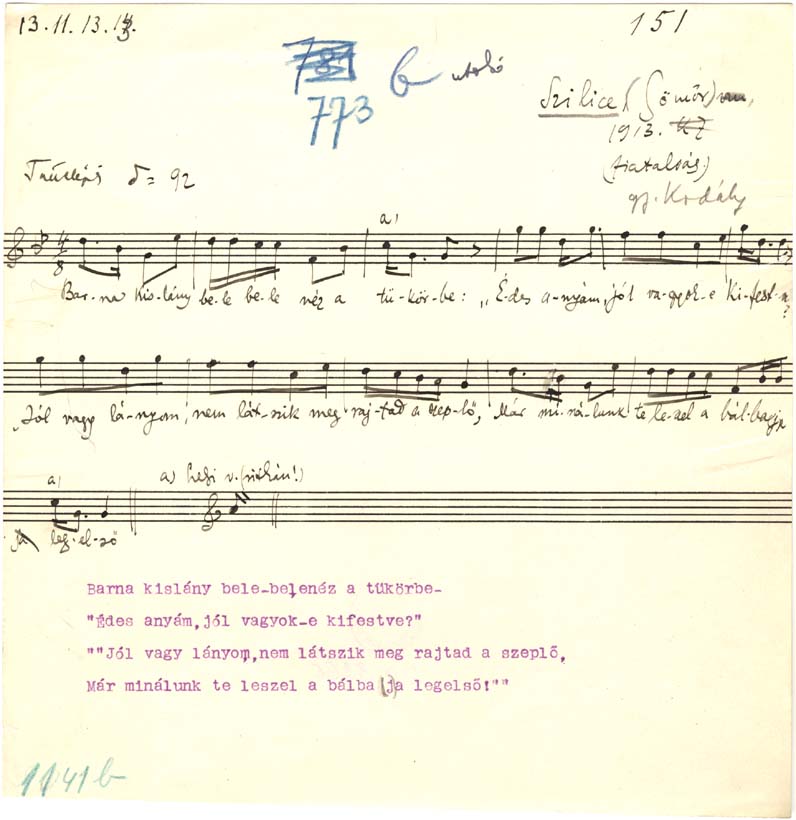 13. 11. 13. 13.
151
781
773 b utolsó
Szilice (Gömör)
1913.
(fiatalság)
gy. Kodály
= 92
a)
Bar-na kis-lány be-le be-le néz a tü-kör-be: „Édes a-nyám, jól va-gyok-e Ki-fest-ve?
„Jól vagy lá-nyom, nem lát-szik meg raj-tad a szep-lő, Már mi-ná-lunk te le-szel a bál-baaja
a) a) (ritkán!)
ja leg-el-ső
Barna kislány bele-belenéz a tükörbe-
"Édes anyám,jól vagyok-e kifestve?"
""Jól vagy lányom,nem látszik meg rajtad a szeplő,
Már minálunk te leszel a bálba(j)a legelső!""
1141 b